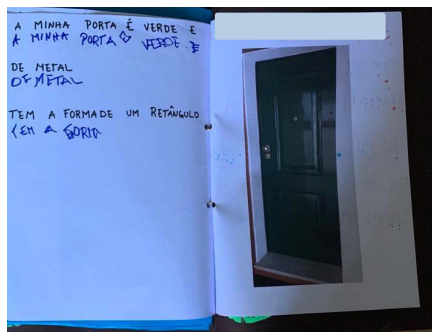 A MINHA PORTA É VERDE E
A MINHA PORTA É VERDE E
DE METAL
DE METAL
TEM A FORMA DE UM RETÂNGULO
TEM A FORMA